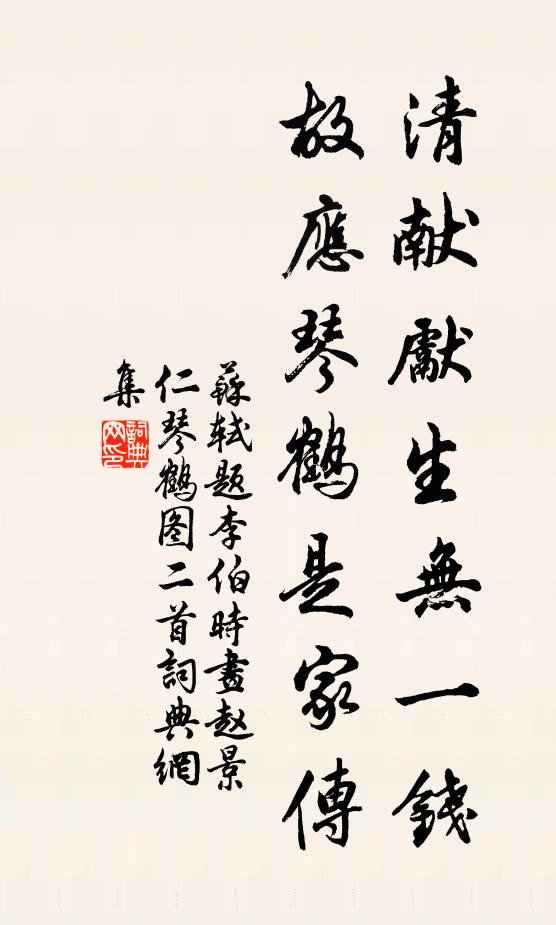 清献獻生無一錢
故應琴鶴是家傳
蘇軾题李伯時畫赵景
仁琴鶴图二首詞典網
集
詞典
网印